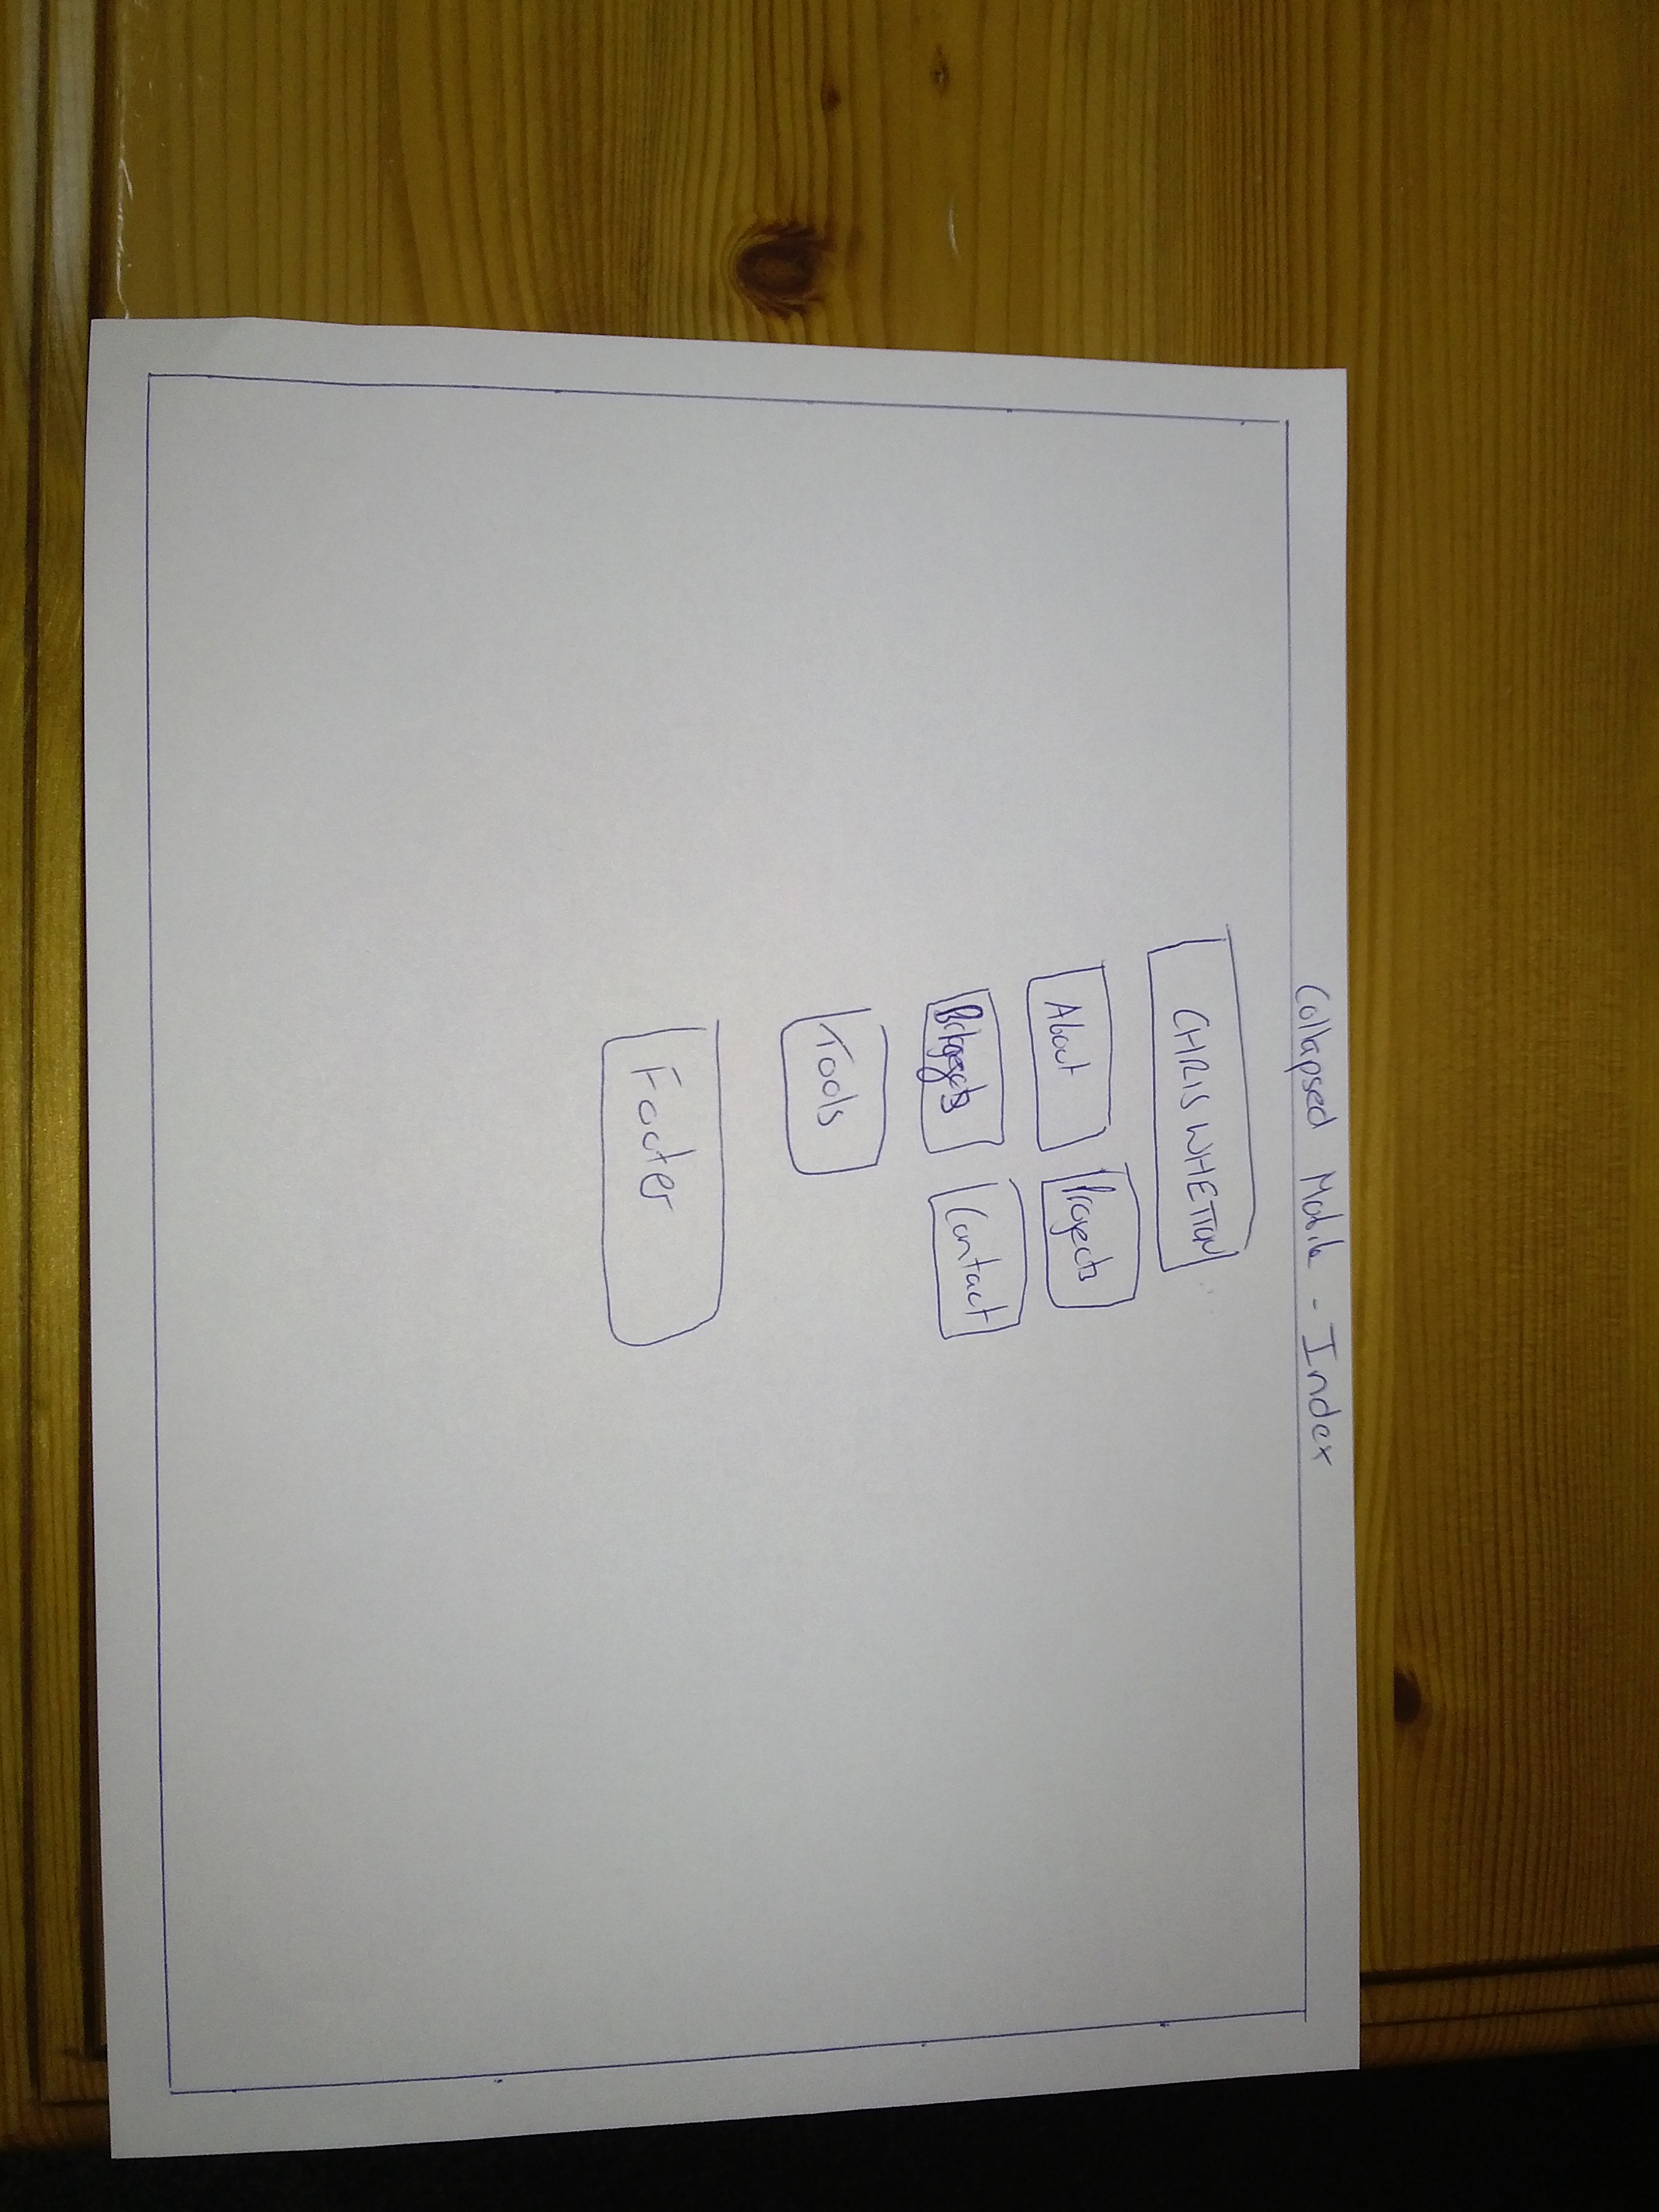 Collapsed Mobile - Index
CHRIS WHETTON
About Projects
Contact
Tools
Footer